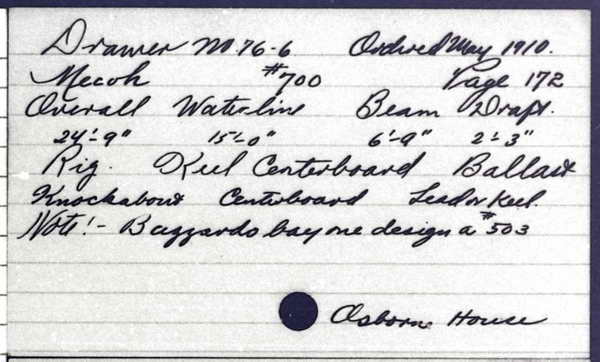 Drawer No 76-6 Ordered May 1910.
Mecoh #700 Page 172
Overall Waterline Beam Draft.
24'-9" 15'-0" 6'-9" 2'-3"
Rig. Keel Centerboard Ballast
Knockabout Centerboard Lead on Keel.
Note!- Buzzards bay one design a #503
Osborn House